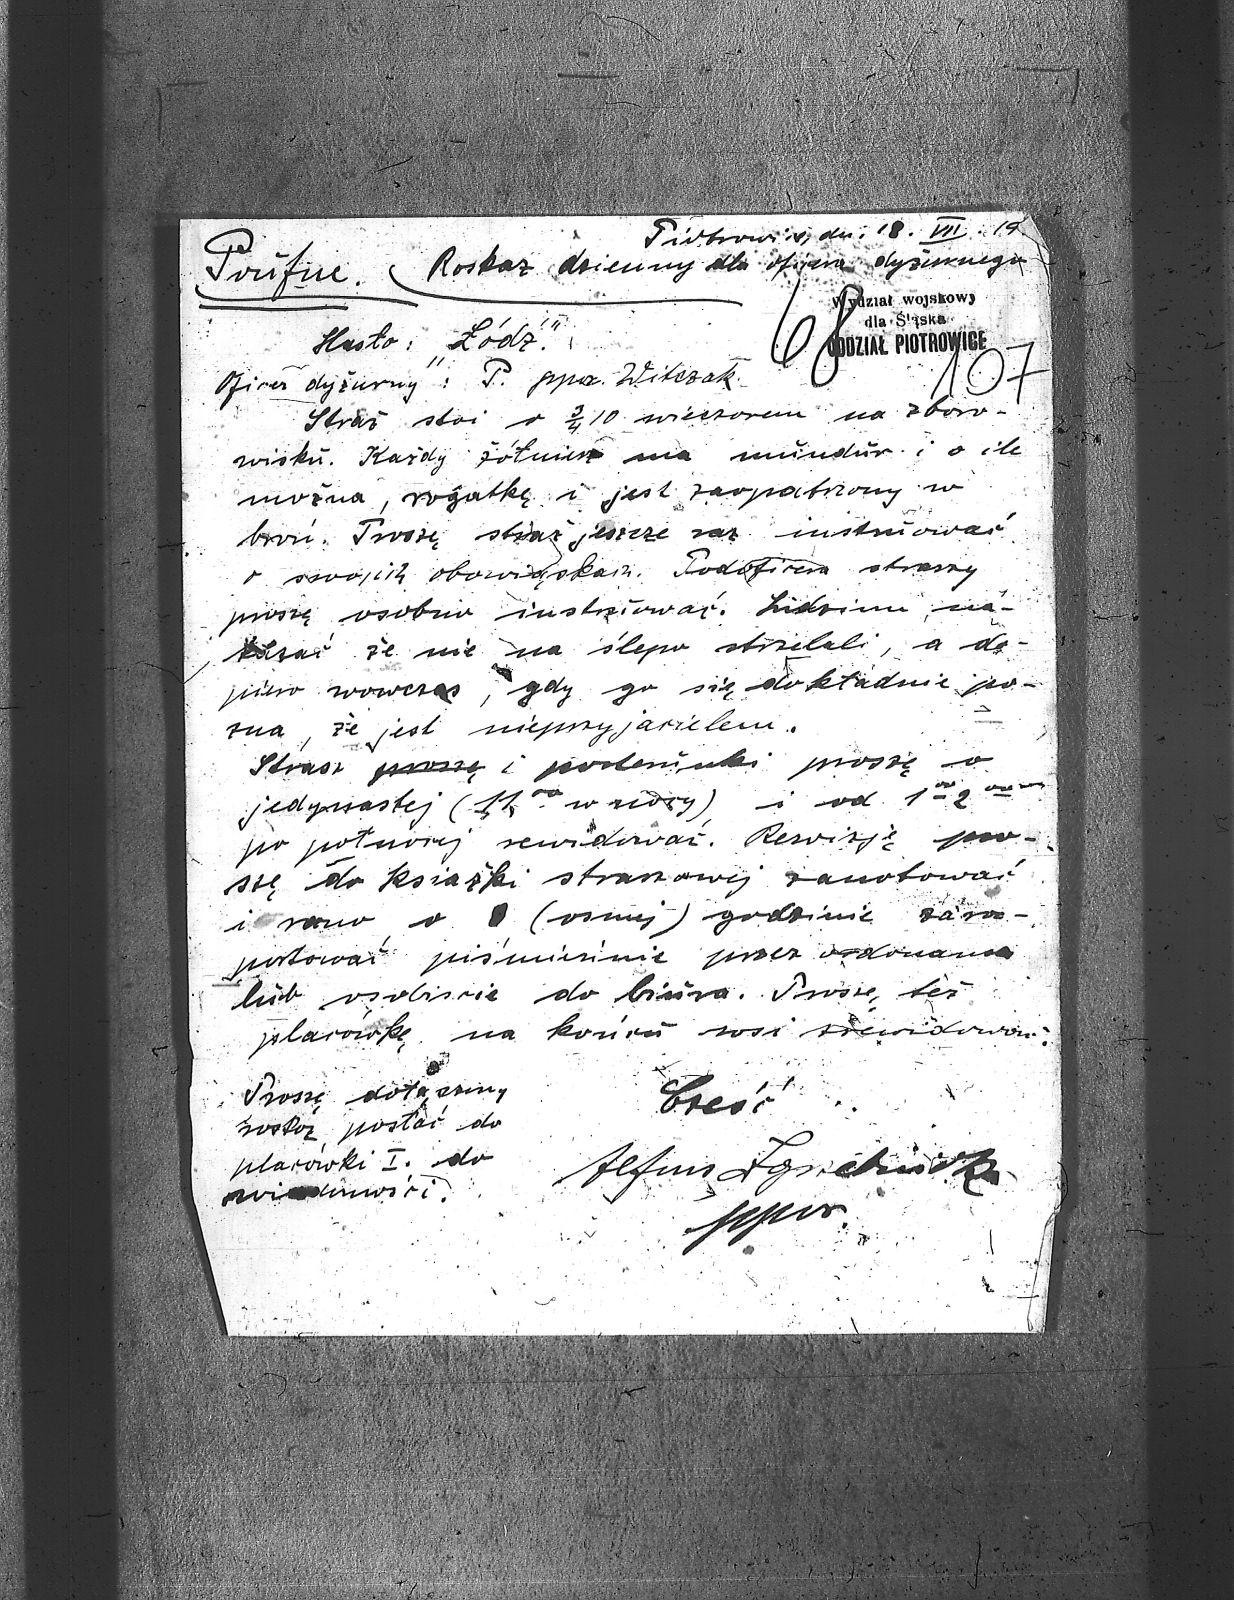 Piotrowice, dn. 18. VII. 19
Poufne. Roskaz dzienny dla oficera dyżurnego
Wydział wojskowy
dla Śląska
ODDZIAŁ PIOTROWICE
68
107
Hasło: „Łódź".
Oficer dyżurny: P. ppor. Witczak.
Straż stoi o ¾10 wieczorem na zboro-
wisku. Każdy żółnierz ma mundur i o ile
można, rogatkę i jest zaopatrzony w
broń. Proszę straż jeszcze raz instruować
o swojich obowiąskach. Podoficera straży
proszę osobno instruować. Ludziom na-
kazać że nie na ślepo strzelali, a do-
piero wowczas, gdy go się dokładnie po-
zna, że jest nieprzyjacielem.
Strasz proszę i posterunki proszę o
jedynastej (11 oo w nocy) i od 1 oo 2
po połnocy rewidować. Rewizję pro-
szę do ksiażki straszowej zanotować
i rano o 8 (osmej) godzinie zara-
portować piśmiennie przez ordonansa
lub osobiscie do biura. Proszę też
placówkę na końcu wsi zrewidować.
Proszę dołączony
roskaz posłać do
placówki I. do
wiadomości.
Cześć
Alfons Zgrzebniok
ppor.